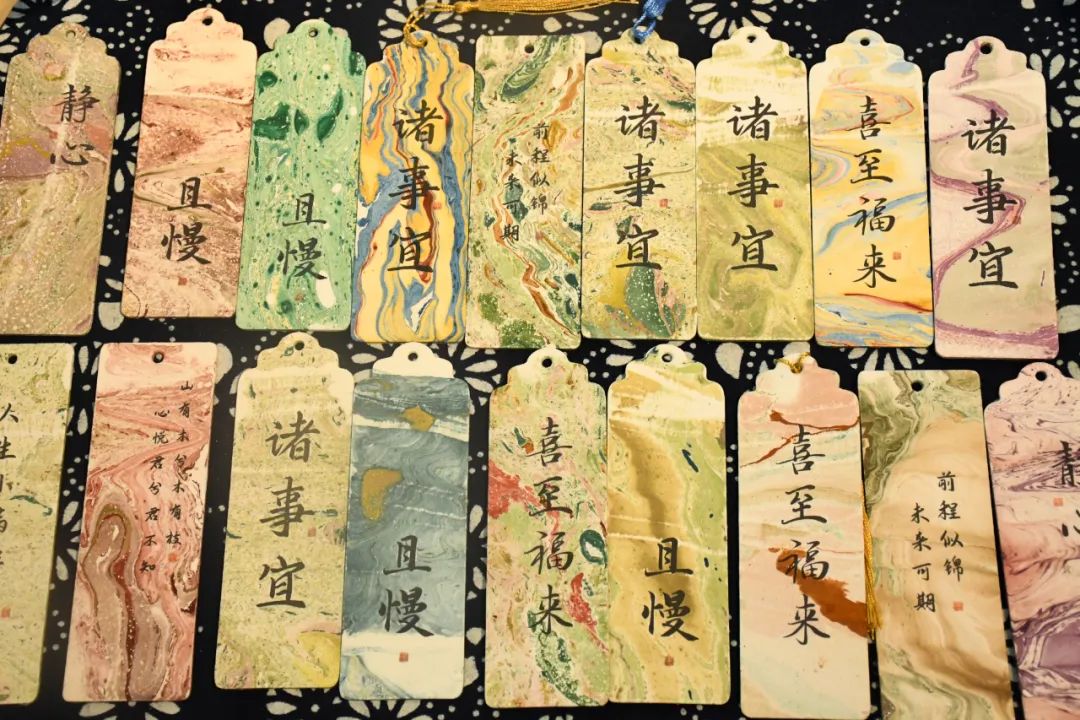 静心
且慢
且慢
诸事宜
前程似锦
未来可期
诸事宜
诸事宜
喜至福来
诸事宜
人生小满
山有木兮木有枝
心悦君兮君不知
诸事宜
且慢
喜至福来
且慢
喜至福来
前程似锦
未来可期
静心